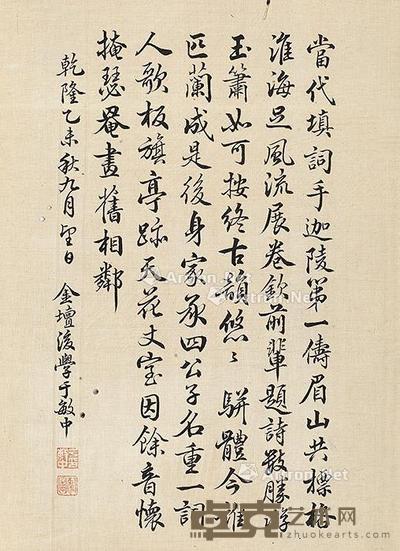 當代填詞手迦陵第一儔眉山共標格
淮海足風流展卷欽前輩題詩數勝游
玉簫如可按終古韻悠〻 駢體今誰
匹蘭成是後身家承四公子名重一詞
人歌板旗亭跡天花丈室因餘音懷
掩瑟罨畫舊相鄰
乾隆乙未秋九月望日 金壇後學于敏中
卓克艺术网
zhuokearts.com